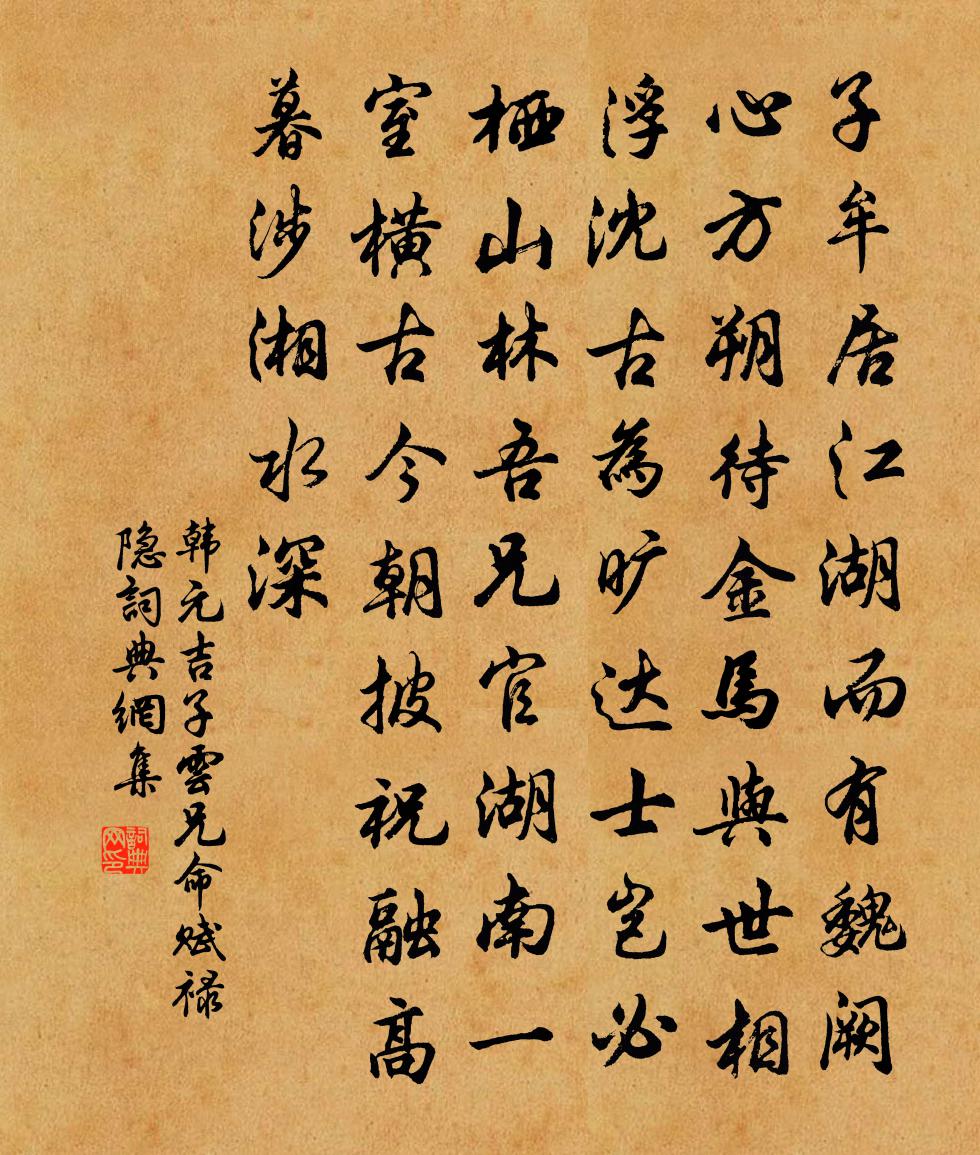 子牟居江湖而有魏阙
心方朔待金馬與世相
浮沈古為旷达士岂必
栖山林吾兄官湖南一
室橫古今朝披祝融高
暮涉湘水深
韩元吉子雲兄命赋禄
隐詞典網集
詞典
网印